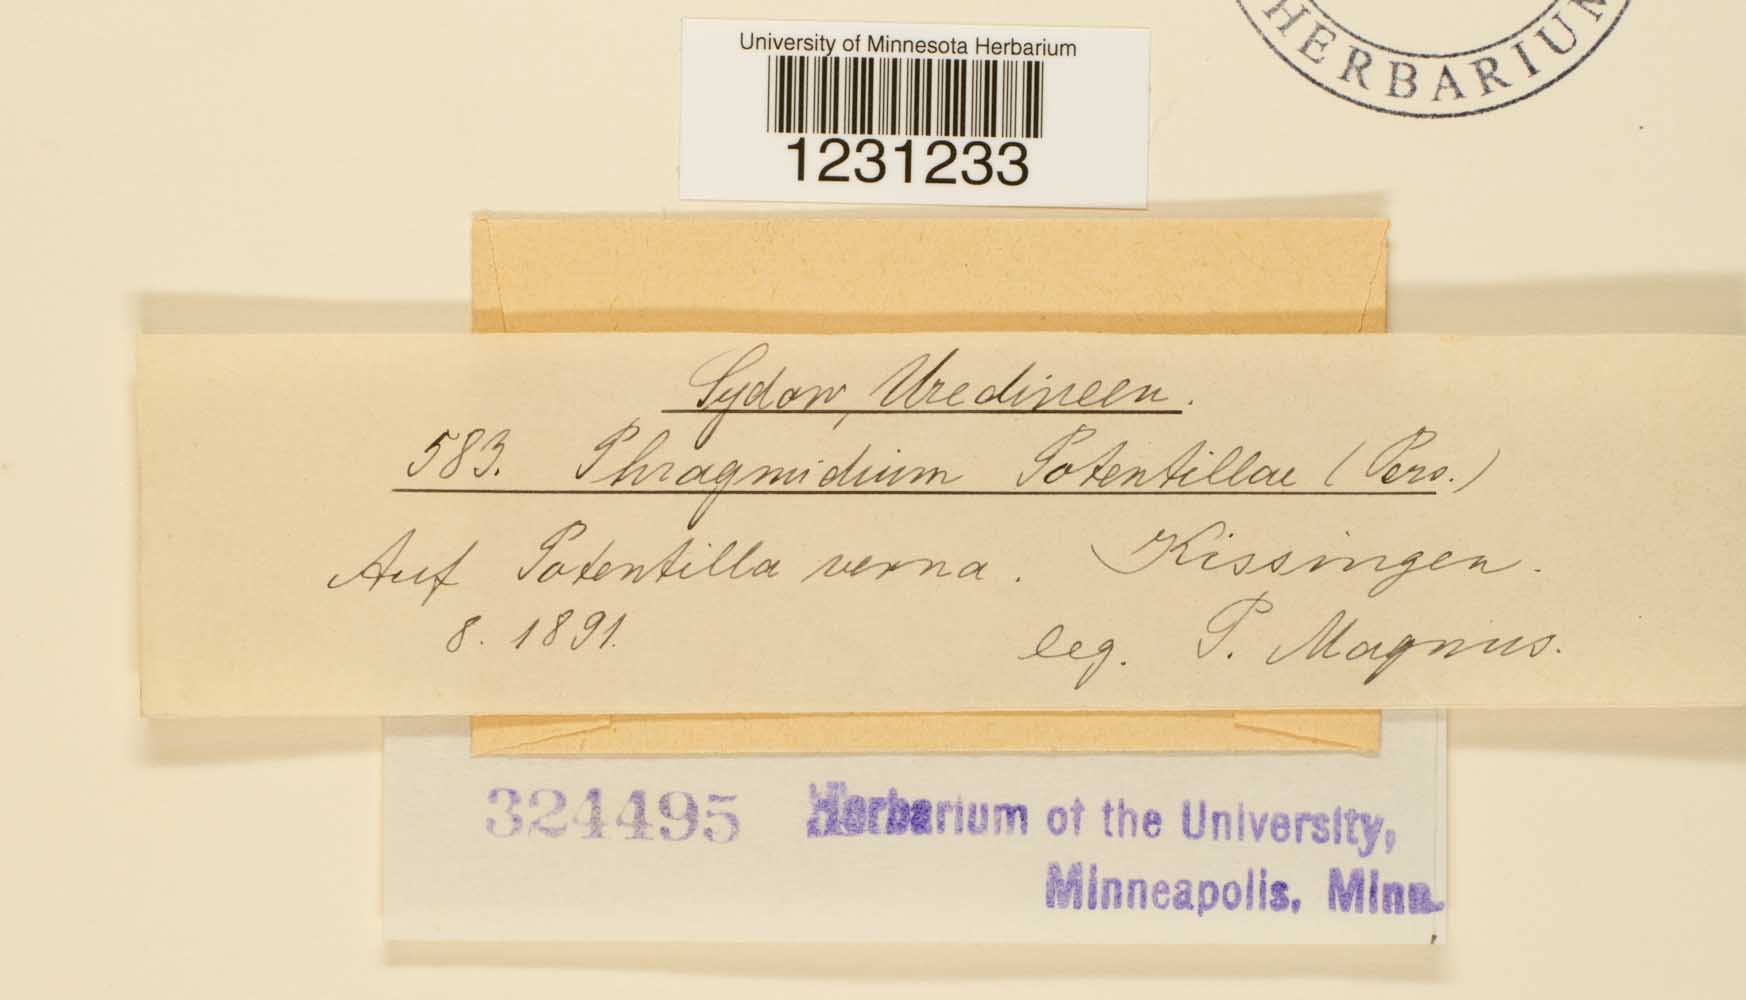 HERBARIUM
University of Minnesota Herbarium
1231233
Sydow, Uredineen.
583. Phragmidium Potentillae (Pers.)
Auf Potentilla verna. Kissingen.
8. 1891. leg. P. Magnus.
324495 Herbarium of the University,
Minneapolis, Minn.